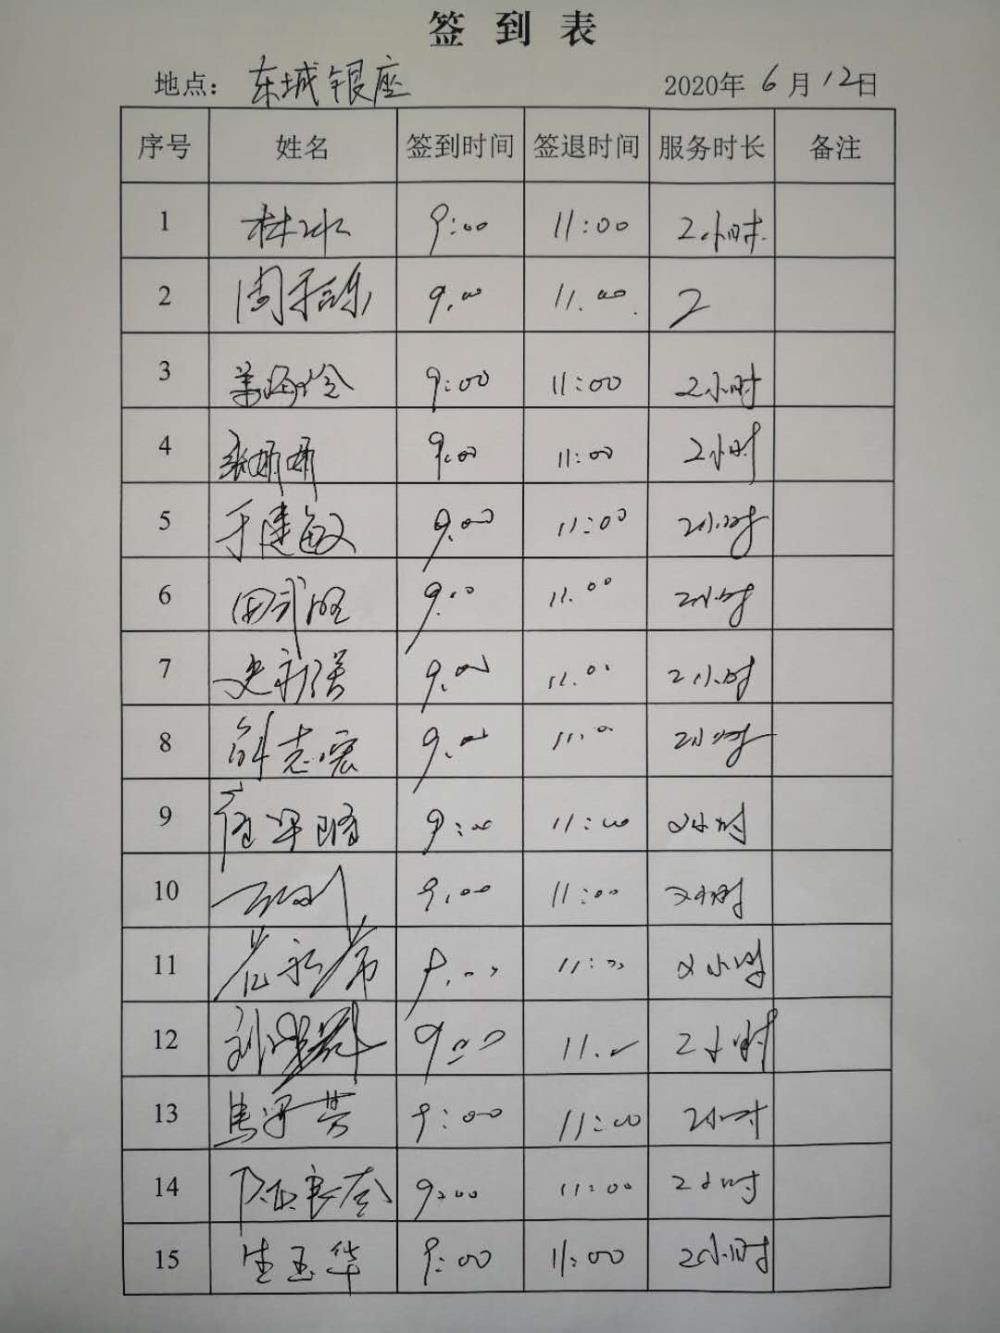 签到表
地点： 东城银座 2020年6月12日
序号 姓名 签到时间 签退时间 服务时长 备注
1 林冰 9:00 11:00 2小时
2 9.00 11.00 2
3 9:00 11:00 2小时
4 张娜娜 9:00 11:00 2小时
5 于建敏 9.00 11:00 2小时
6 9.00 11.00 2小时
7 史新强 9.00 11.00 2小时
8 志宏 9.00 11.0 2小时
9 9:00 11:00 2小时
10 9:00 11:00 2小时
11 9.00 11:00 2小时
12 9:00 11.0 2小时
13 9:00 11:00 2小时
14 9:00 11:00 2小时
15 生玉华 9:00 11:00 2小时